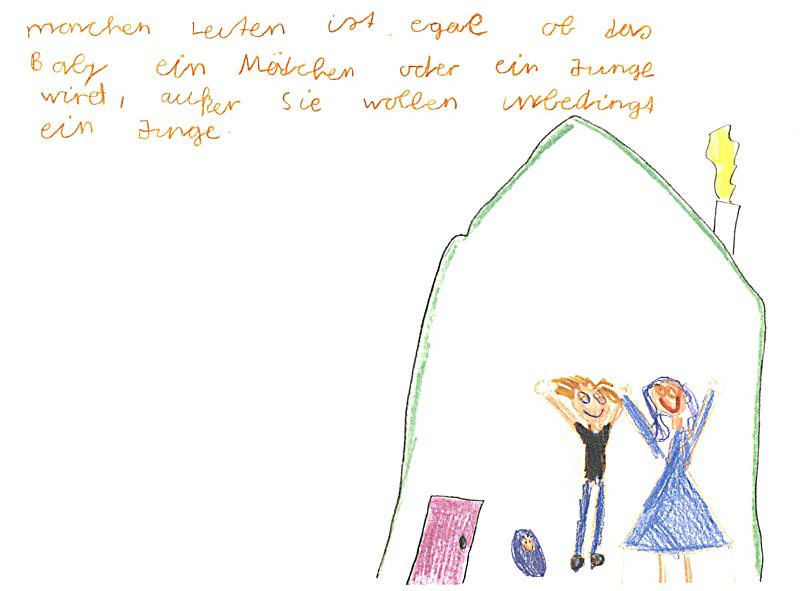 manchen Leuten ist egal ob das
Baby ein Mädchen oder ein Junge
wird, außer Sie wollen unbedingt
ein Junge.